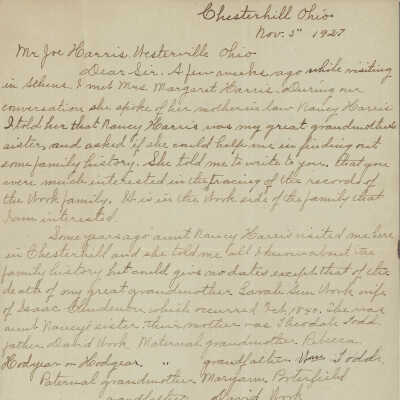 Chesterhill Ohio
Nov. 5" 1927
Mr Joe Harris, Westerville Ohio
Dear Sir. A few weeks ago while visiting
in Athens I met Mrs Margaret Harris. During our
conversation she spoke of her mother in law Nancy Harris
I told her that Nancy Harris was my great grandmothers
sister, and asked if she could help me in finding out
some family history. She told me to write to you, that you
were much interested in the tracing of the records of
the Work family. It is in the Work side of the family that
I am interested.
Some years ago aunt Nancy Harris visited me here
in Chesterhill and she told me all I know about the
family history but could give no dates except that of the
death of my great grandmother Sarah Ann Work wife
of Isaac Clendenon which occurred Feb, 1890. She was
aunt Nancy's sister. Their mother was Theodate Todd
father David Work Maternal grandmother Rebecca
Hodyear or Hodgear. " grandfather Wm Todd.
Paternal grandmother Maryann Porterfield
grandfather David Work